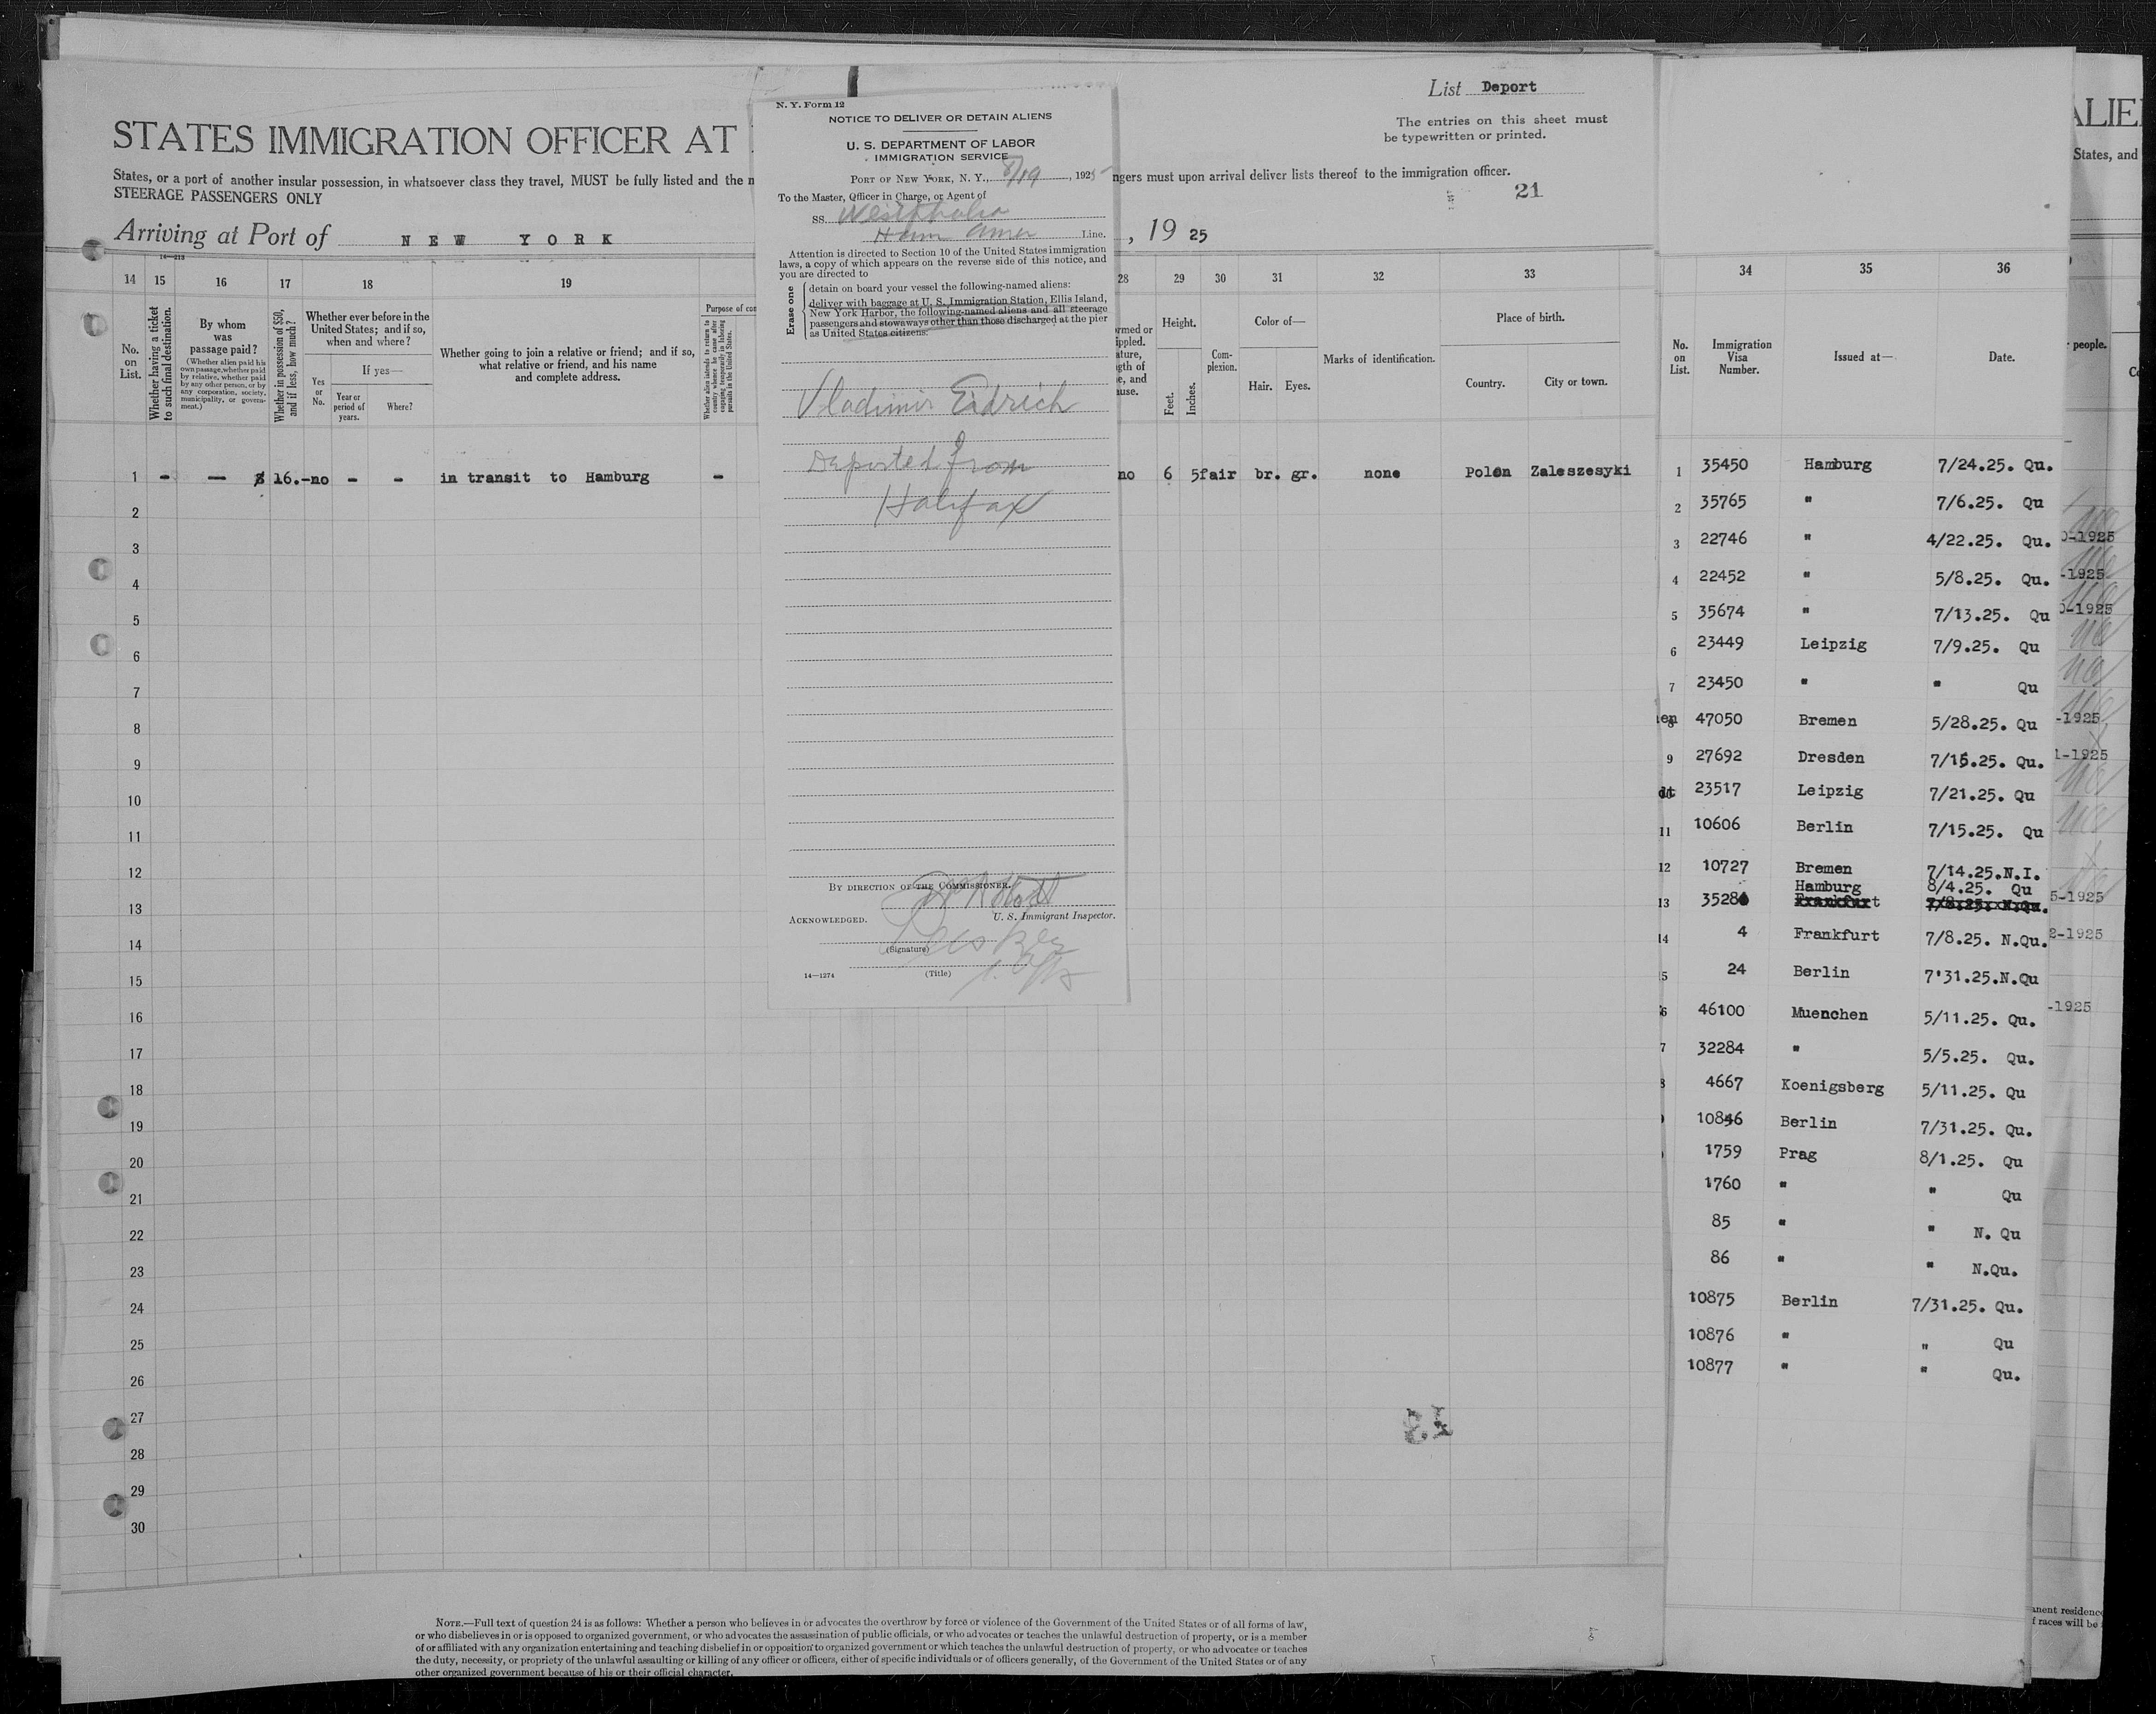 List Deport
The entries on this sheet must
be typewritten or printed.
STATES IMMIGRATION OFFICER AT
States, or a port of another insular possession, in whatsoever class they travel, MUST be fully listed and the
ngers must upon arrival deliver lists thereof to the immigration officer.
STEERAGE PASSENGERS ONLY
21
Arriving at Port of NEW YORK
, 19 25
14—213
14 15 16 17 18 19
No. on List.
Whether having a ticket to such final destination.
By whom was passage paid?
(Whether alien paid his own passage, whether paid by relative, whether paid by any other person, or by any corporation, society, municipality, or government.)
Whether in possession of $50, and if less, how much?
Whether ever before in the United States; and if so, when and where?
Yes or No.
If yes—
Year or period of years.
Where?
Whether going to join a relative or friend; and if so, what relative or friend, and his name and complete address.
Purpose of
Whether alien intends to return to country whence he came after engaging temporarily in laboring pursuits in the United States.
28 29 30 31 32 33
Height.
Feet.
Inches.
Complexion.
Color of—
Hair. Eyes.
Marks of identification.
Place of birth.
Country. City or town.
1 - - $ 16.-no - - in transit to Hamburg -
no 6 5 fair br. gr. none Polen Zaleszesyki
2
3
4
5
6
7
8
9
10
11
12
13
14
15
16
17
18
19
20
21
22
23
24
25
26
27
28
29
30
N. Y. Form 12
NOTICE TO DELIVER OR DETAIN ALIENS
U. S. DEPARTMENT OF LABOR
IMMIGRATION SERVICE
PORT OF NEW YORK, N. Y., 8/19, 1925
To the Master, Officer in Charge, or Agent of
SS. Westphalia
Ham Amer Line.
Attention is directed to Section 10 of the United States immigration
laws, a copy of which appears on the reverse side of this notice, and
you are directed to
Erase one
detain on board your vessel the following-named aliens:
deliver with baggage at U. S. Immigration Station, Ellis Island,
New York Harbor, the following-named aliens and all steerage
passengers and stowaways other than those discharged at the pier
as United States citizens:
Vladimir Eidrich
Deported from
Halifax
BY DIRECTION OF THE COMMISSIONER.
ACKNOWLEDGED.
U. S. Immigrant Inspector.
(Signature)
(Title)
14—1274
34 35 36
No. on List.
Immigration Visa Number.
Issued at—
Date.
1 35450 Hamburg 7/24.25. Qu.
2 35765 " 7/6.25. Qu
3 22746 " 4/22.25. Qu.
4 22452 " 5/8.25. Qu.
5 35674 " 7/13.25. Qu
6 23449 Leipzig 7/9.25. Qu
7 23450 " " Qu
8 47050 Bremen 5/28.25. Qu
9 27692 Dresden 7/15.25. Qu.
10 23517 Leipzig 7/21.25. Qu
11 10606 Berlin 7/15.25. Qu
12 10727 Bremen 7/14.25.N.I.
Hamburg 8/4.25. Qu
13 35280 Frankfurt 7/8.25. N.Qu.
14 4 Frankfurt 7/8.25. N.Qu.
5 24 Berlin 7'31.25.N.Qu
6 46100 Muenchen 5/11.25. Qu.
7 32284 " 5/5.25. Qu.
8 4667 Koenigsberg 5/11.25. Qu
10846 Berlin 7/31.25. Qu.
1759 Prag 8/1.25. Qu
1760 " " Qu
85 " " N. Qu
86 " " N.Qu.
10875 Berlin 7/31.25. Qu.
10876 " " Qu
10877 " " Qu.
ALIE
States, and
people.
-1925
-1925
-1925
-1925
1-1925
5-1925
2-1925
-1925
anent residence
f races will be
NOTE.—Full text of question 24 is as follows: Whether a person who believes in or advocates the overthrow by force or violence of the Government of the United States or of all forms of law,
or who disbelieves in or is opposed to organized government, or who advocates the assassination of public officials, or who advocates or teaches the unlawful destruction of property, or is a member
of or affiliated with any organization entertaining and teaching disbelief in or opposition to organized government or which teaches the unlawful destruction of property, or who advocates or teaches
the duty, necessity, or propriety of the unlawful assaulting or killing of any officer or officers, either of specific individuals or of officers generally, of the Government of the United States or of any
other organized government because of his or their official character.